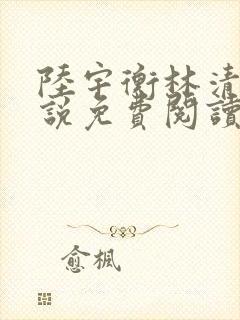 陸宇衡林清
說免費閱讀
愈楓